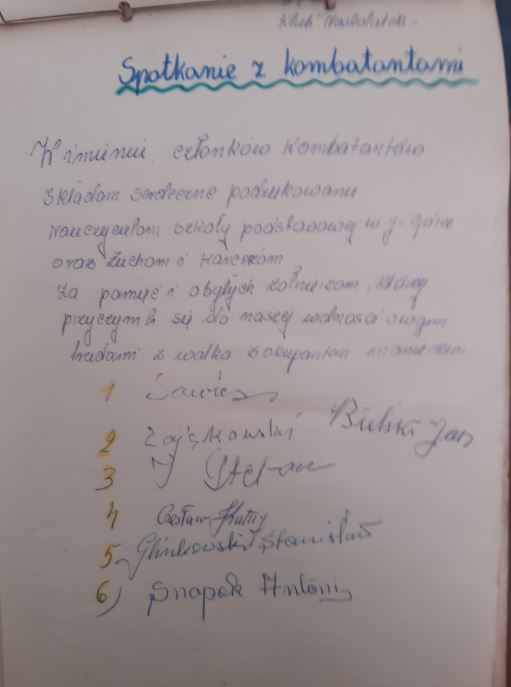 Klub
Spotkanie z kombatantami
W imieniu członków Kombatantów
składam serdeczne podziękowanie
nauczycielom szkoły podstawowej w J-Górze
oraz Zuchom i Harcerzom,
Za pamięć i obyłych żołnierzom, którzy
przyczynili się do naszej wolności swymi
trudami z walką z okupantem niemieckim
1 Sawicz
2 Zajękowski Bielski Jan
3 J Stefan
4 Czesław
5 Glinkowski Stanisław
6) Snopek Antoni